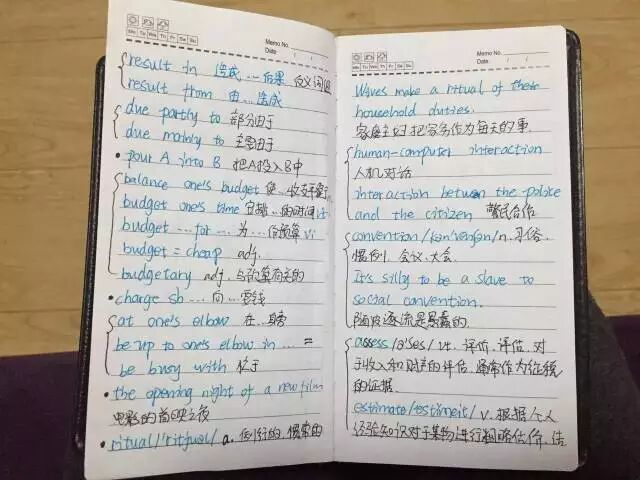 Mo Tu We Th Fr Sa Su
Memo No.
Date / /
result in 造成,…后果
result from 由…造成
due partly to 部分由于
due mainly to 主要由于
• pour A into B 把A投入B中
balance one's budget 使…收支平衡
budget one's time 安排…的时间 vt
budget … for … 为…作预算 vi
budget = cheap adj.
budgetary adj. 与预算有关的
• charge sb … 向…要钱
at one's elbow 在…旁
be up to one's elbow in … =
be busy with 忙于
• the opening night of a new film
电影的首映之夜
• ritual /'ritʃuəl/ a. 例行的, 惯常的
Mo Tu We Th Fr Sa Su
Memo No.
Date / /
Wives make a ritual of their
household duties.
家庭主妇把家务作为每天的事.
human-computer interaction
人机对话
interaction between the police
and the citizen 警民合作
convention /kən'venʃən/ n. 习俗,
惯例. 会议. 大会.
It's silly to be a slave to
social convention.
随波逐流是愚蠢的.
assess /ə'ses/ vt. 评估, 评估. 对
于收入和财产的评估, 通常作为征税
的证据.
estimate /'estimeit/ v. 根据个人
经验知识对于某物进行粗略估价, 估